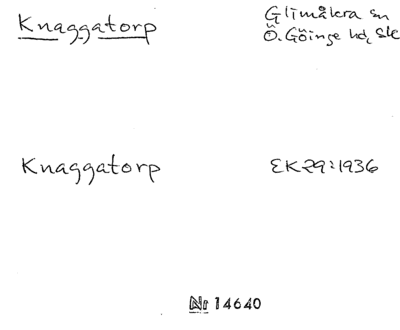 Knaggatorp
Glimåkra sn
Ö. Göinge hd, Sk
Knaggatorp
EK29:1936
Nr 14640